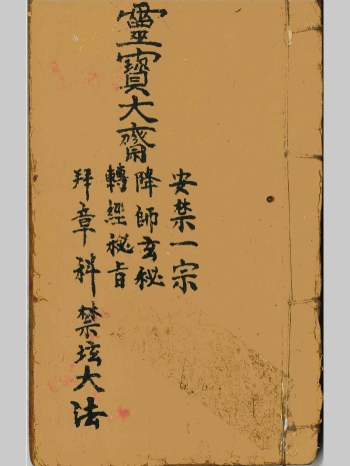 靈寶大齋
安禁一宗
降師玄秘
轉經祕旨
拜章科禁壇大法